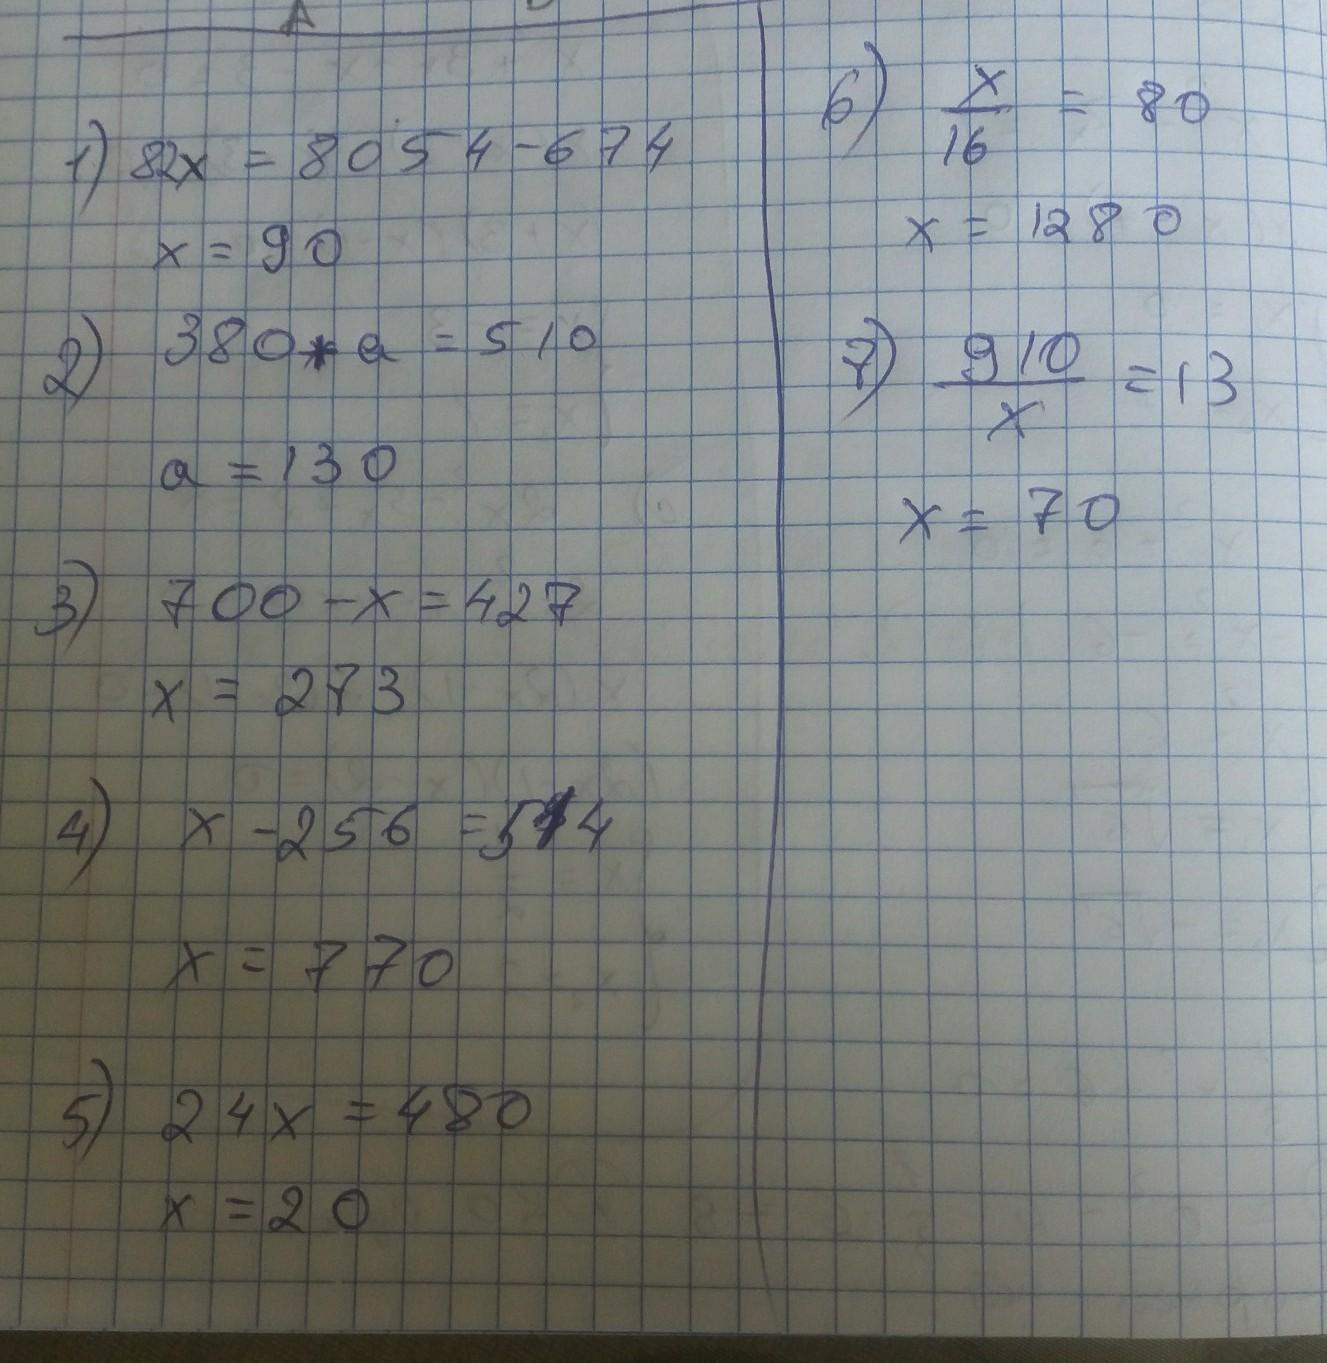 A
1) 82x = 8054-674
x = 90
2) 380+a = 510
a = 130
3) 700-x = 427
x = 273
4) x-256 = 514
x = 770
5) 24x = 480
x = 20
6) x/16 = 80
x = 1280
7) 910/x = 13
x = 70